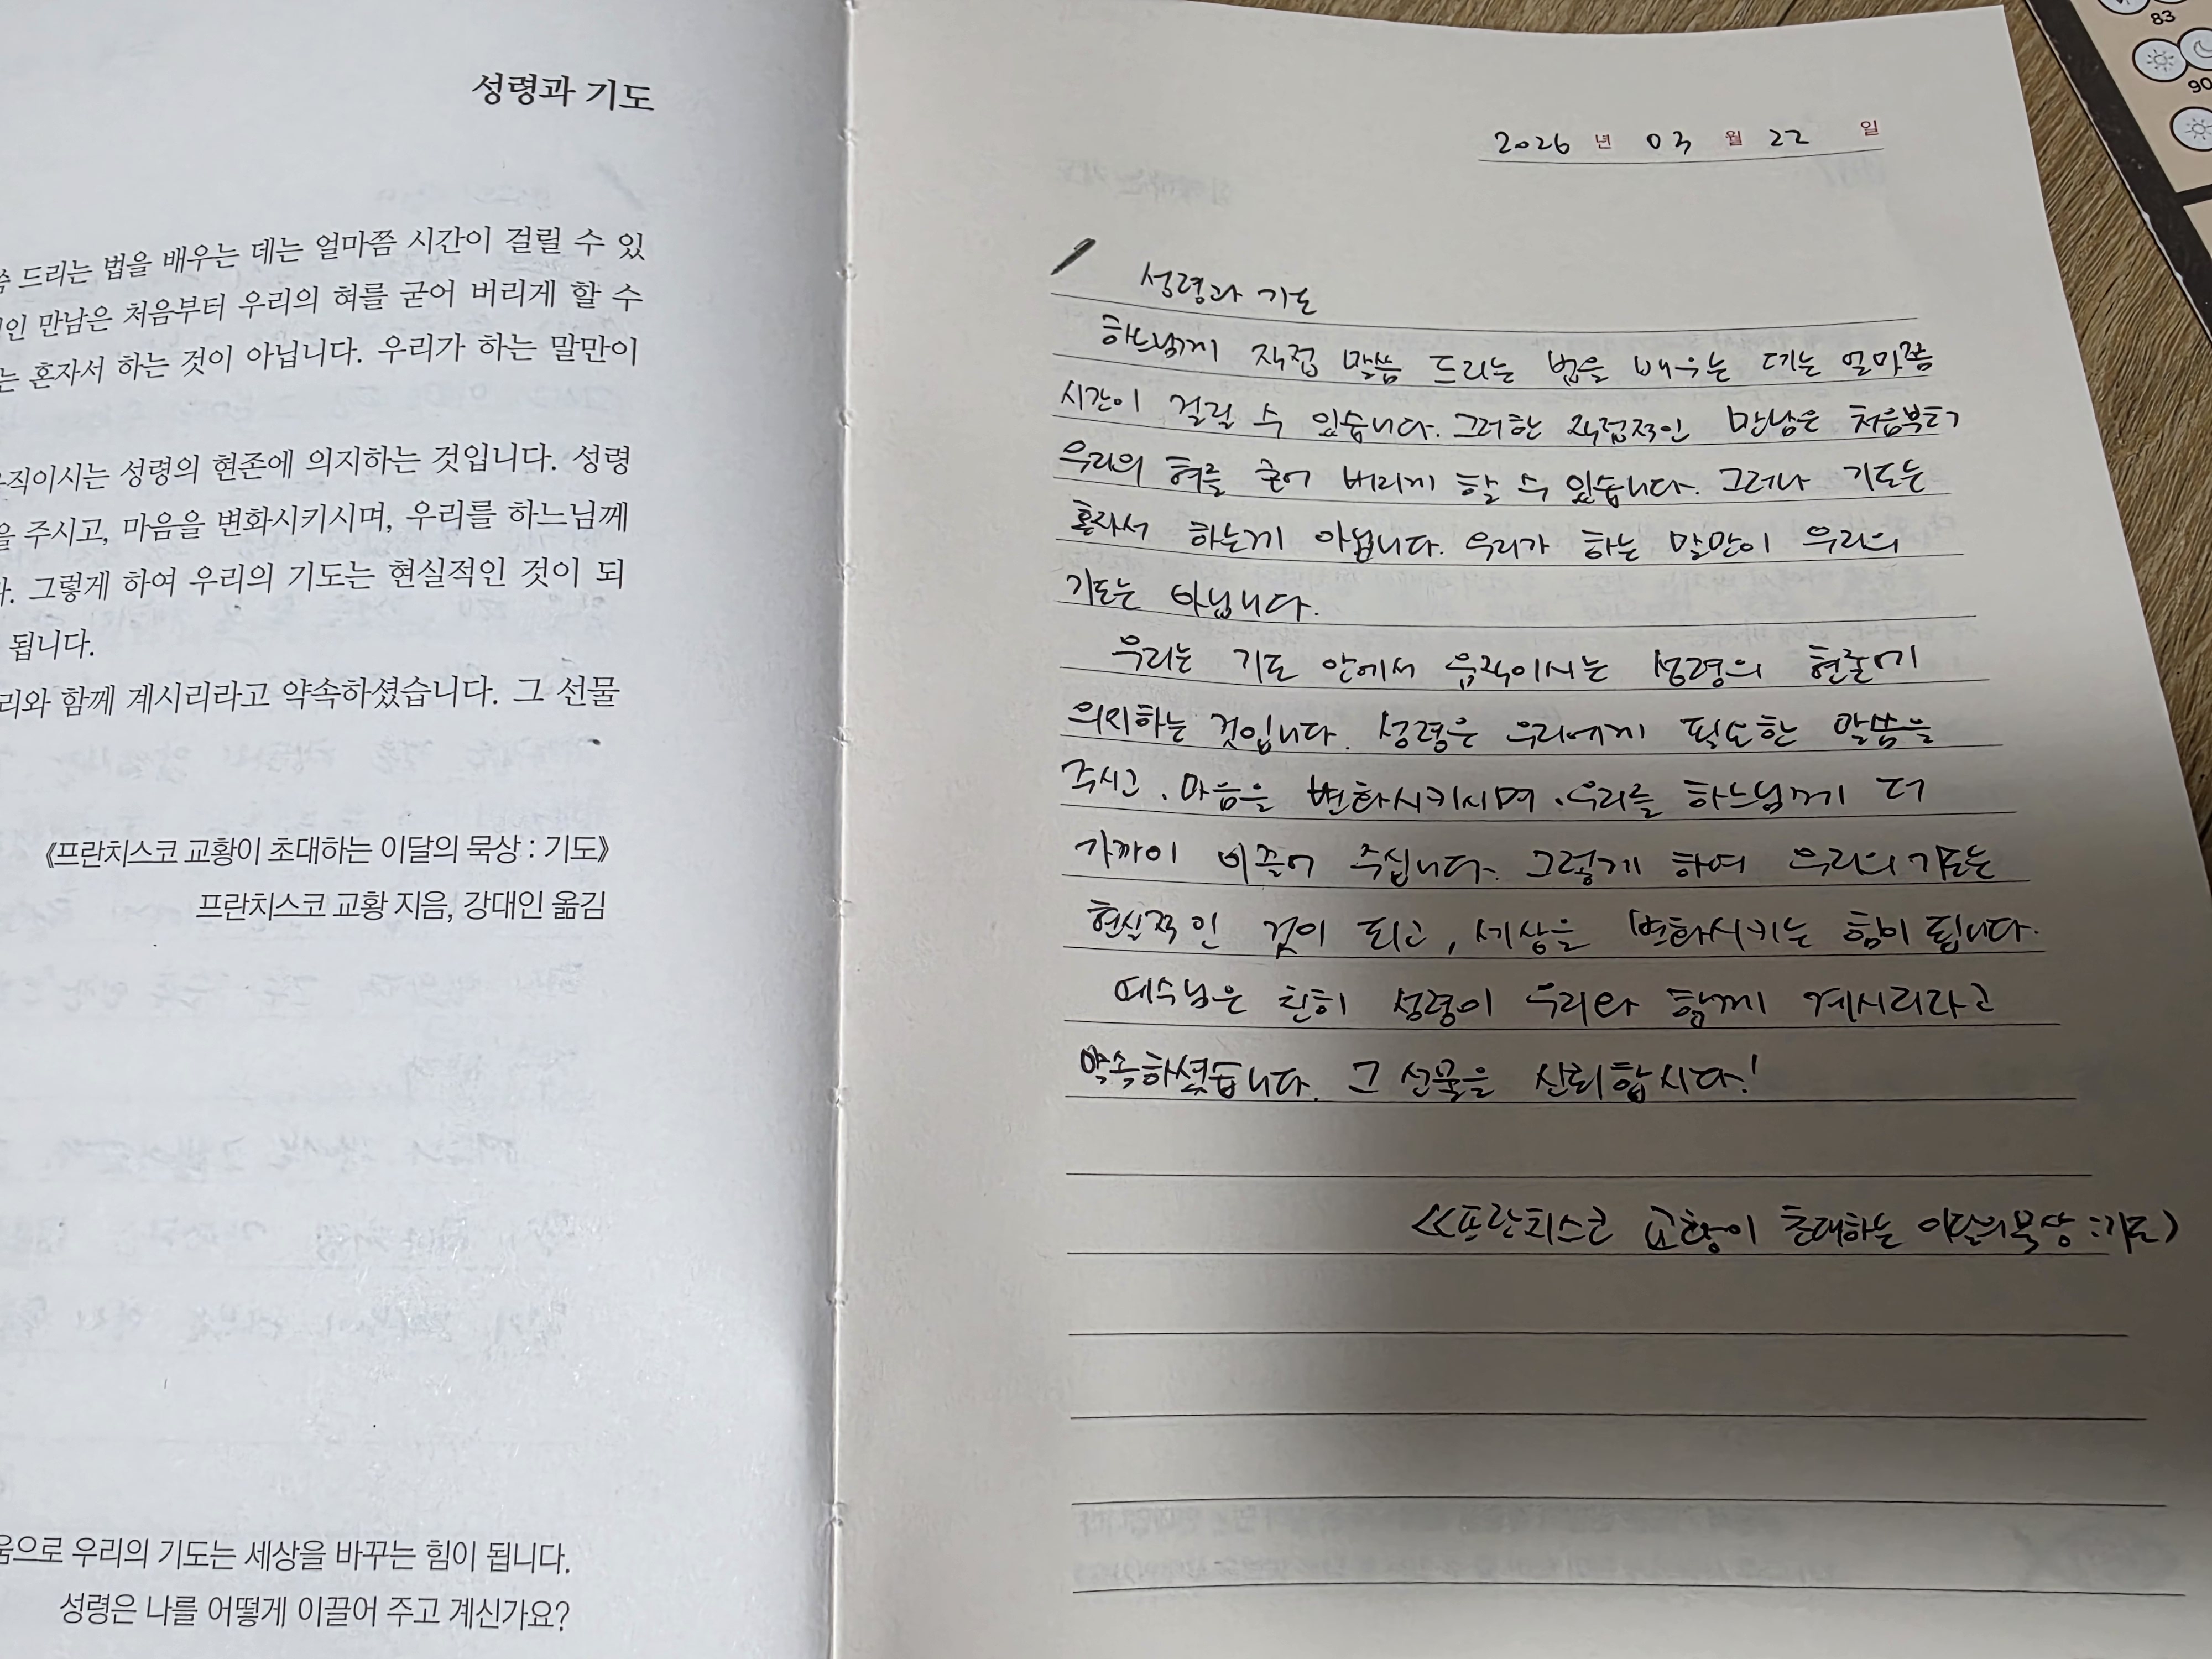 성령과 기도
드리는 법을 배우는 데는 얼마쯤 시간이 걸릴 수 있
인 만남은 처음부터 우리의 혀를 굳어 버리게 할 수
는 혼자서 하는 것이 아닙니다. 우리가 하는 말만이
직이시는 성령의 현존에 의지하는 것입니다. 성령
을 주시고, 마음을 변화시키시며, 우리를 하느님께
. 그렇게 하여 우리의 기도는 현실적인 것이 되
됩니다.
리와 함께 계시리라고 약속하셨습니다. 그 선물
《프란치스코 교황이 초대하는 이달의 묵상 : 기도》
프란치스코 교황 지음, 강대인 옮김
움으로 우리의 기도는 세상을 바꾸는 힘이 됩니다.
성령은 나를 어떻게 이끌어 주고 계신가요?
2026 년 03 월 22 일
성령과 기도
하느님께 직접 말씀 드리는 법을 배우는 데는 얼마쯤
시간이 걸릴 수 있습니다. 그러한 직접적인 만남은 처음부터
우리의 혀를 굳어 버리게 할 수 있습니다. 그러나 기도는
혼자서 하는게 아닙니다. 우리가 하는 말만이 우리의
기도는 아닙니다.
우리는 기도 안에서 움직이시는 성령의 현존에
의지하는 것입니다. 성령은 우리에게 필요한 말씀을
주시고, 마음을 변화시키시며, 우리를 하느님께 더
가까이 이끌어 주십니다. 그렇게 하여 우리의 기도는
현실적인 것이 되고, 세상을 변화시키는 힘이 됩니다.
예수님은 친히 성령이 우리와 함께 계시리라고
약속하셨습니다. 그 선물을 신뢰합시다!
<<프란치스코 교황이 초대하는 이달의 묵상 : 기도>
83
90